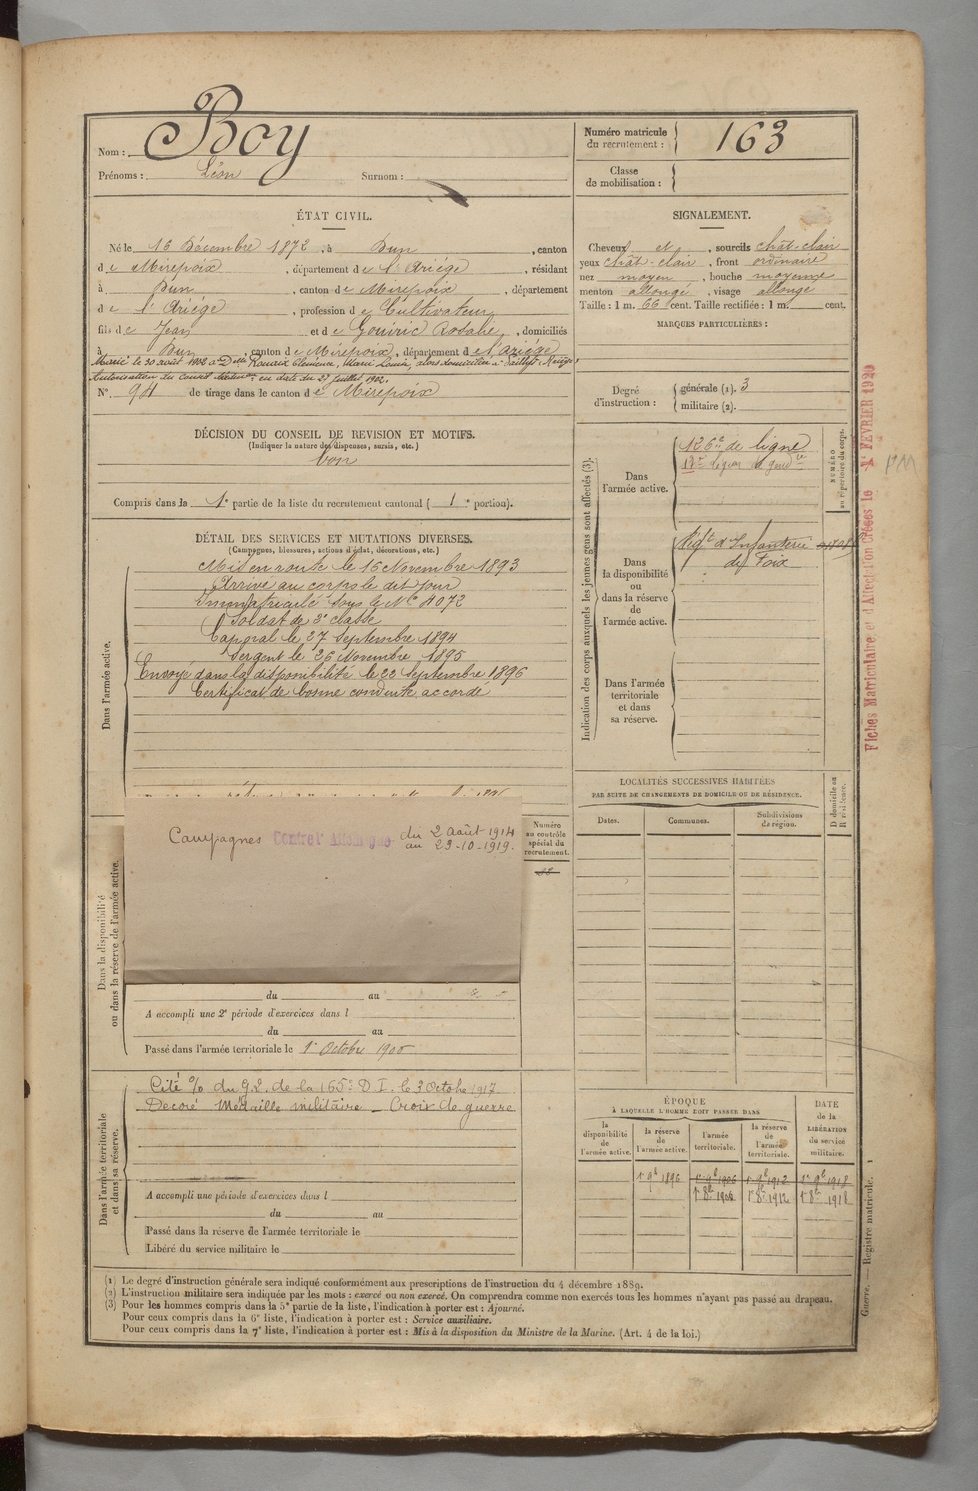 Nom : Boy
Prénoms : Léon Surnom :
Numéro matricule du recrutement : 163
Classe de mobilisation :
ÉTAT CIVIL.
Né le 16 Décembre 1872, à Dun, canton
de Mirepoix, département de l'Ariége, résidant
à Dun, canton de Mirepoix, département
de l'Ariége, profession de Cultivateur,
fils de Jean et de Gouiric Rosalie, domiciliés
à Dun, canton de Mirepoix, département de l'ariége
Marié le 30 août 1902 à Delle Rouaix Clémence, Marie Louise, alors domiciliée à
Autorisation du Conseil en date du 27 juillet 1902.
N° 94 de tirage dans le canton de Mirepoix
SIGNALEMENT.
Cheveux et, sourcils chât-clair
yeux chât-clair, front ordinaire
nez moyen, bouche moyenne
menton allongé, visage allongé
Taille : 1 m. 66 cent. Taille rectifiée : 1 m. cent.
MARQUES PARTICULIÈRES :
Degré d'instruction : générale (1). 3
militaire (2).
DÉCISION DU CONSEIL DE REVISION ET MOTIFS.
(Indiquer la nature des dispenses, sursis, etc.)
bon
Compris dans la 1e partie de la liste du recrutement cantonal ( 1e portion).
DÉTAIL DES SERVICES ET MUTATIONS DIVERSES.
(Campagnes, blessures, actions d'éclat, décorations, etc.)
Dans l'armée active.
Mis en route le 16 Novembre 1893
Arrivé au corps le dit jour
Immatriculé sous le No 4072
Soldat de 2e classe
Caporal le 27 Septembre 1894
Sergent le 26 Novembre 1895
Envoyé dans la disponibilité le 22 Septembre 1896
Certificat de bonne conduite accordé
Indication des corps auxquels les jeunes gens sont affectés (3).
Dans l'armée active.
126e de ligne
17e légion de gendie
NUMÉRO au répertoire du corps.
Dans la disponibilité ou dans la réserve de l'armée active.
Régt d'Infanterie
de Foix
Dans l'armée territoriale et dans sa réserve.
Fiches Matriculaire et d'Affectation créées le 1r FEVRIER 1920
Dans la disponibilité ou dans la réserve de l'armée active.
Campagnes Contre l'Allemagne du 2 août 1914
au 23-10-1919.
Numéro au contrôle spécial du recrutement.
du au
A accompli une 2e période d'exercices dans l
du au
Passé dans l'armée territoriale le 1er Octobre 1906
LOCALITÉS SUCCESSIVES HABITÉES
PAR SUITE DE CHANGEMENTS DE DOMICILE OU DE RÉSIDENCE.
Dates. Communes. Subdivisions de région. D domicile ou R résidence.
Dans l'armée territoriale et dans sa réserve.
Cité % du q.g. de la 165e D.I. le 3 Octobre 1917
Decoré Médaille militaire _ Croix de guerre
A accompli une période d'exercices dans l
du au
Passé dans la réserve de l'armée territoriale le
Libéré du service militaire le
ÉPOQUE
À LAQUELLE L'HOMME DOIT PASSER DANS
la disponibilité de l'armée active. la réserve de l'armée active. l'armée territoriale. la réserve de l'armée territoriale. DATE de la LIBÉRATION du service militaire.
1r 9b 1896 1r 9b 1906 1r 9b 1912 1r 9b 1918
1r 8bre 1906 1r 8bre 1912 1r 8bre 1918
(1) Le degré d'instruction générale sera indiqué conformément aux prescriptions de l'instruction du 4 décembre 1889.
(2) L'instruction militaire sera indiquée par les mots : exercé ou non exercé. On comprendra comme non exercés tous les hommes n'ayant pas passé au drapeau.
(3) Pour les hommes compris dans la 5e partie de la liste, l'indication à porter est : Ajourné.
Pour ceux compris dans la 6e liste, l'indication à porter est : Service auxiliaire.
Pour ceux compris dans la 7e liste, l'indication à porter est : Mis à la disposition du Ministre de la Marine. (Art. 4 de la loi.)
Guerre. — Registre matricule. 1